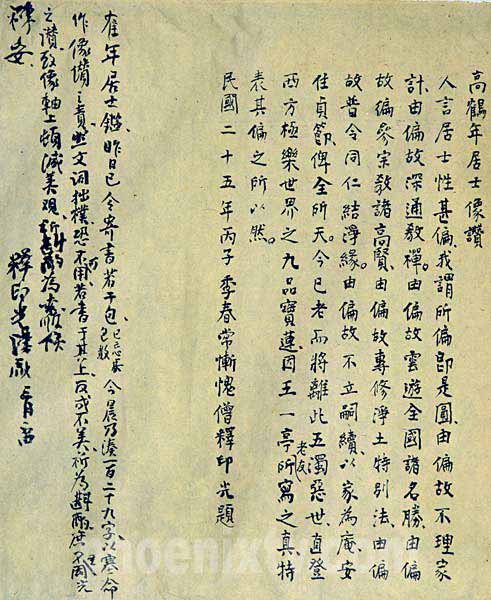 高鶴年居士像讚
人言居士性甚偏我謂所偏即是圓由偏故不理家
計由偏故深通教禪由偏故雲遊全國諸名勝由偏
故徧參宗教諸高賢由偏故專修淨土特別法由偏
故普令同仁結淨緣由偏故不立嗣續以家為庵安
住貞節俾全所天今已老而將離此五濁惡世直登
西方極樂世界之九品寶蓮因王一亭老友所寫之真特
表其偏之所以然
民國二十五年丙子季春常慚愧僧釋印光題
隺年居士鑑昨日已令寄書若干包已忘其包數今晨乃湊一百二十九字以塞命
作像讚之責然文詞拙樸恐不可用若書于其上反成不美祈為斟酌不用光
之讚致像軸上頓減美觀祈為候
禪安
釋印光謹啟三月